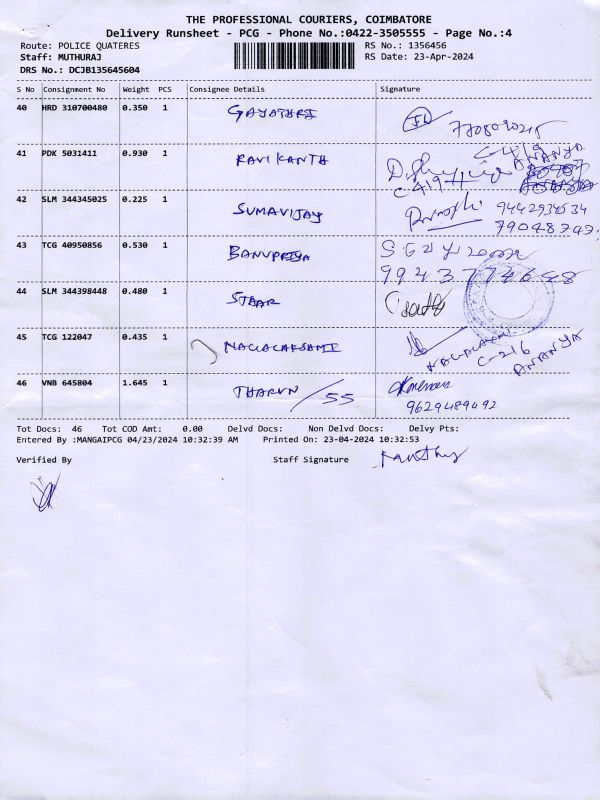 THE PROFESSIONAL COURIERS, COIMBATORE
Delivery Runsheet - PCG - Phone No.:0422-3505555 - Page No.:4
Route: POLICE QUATERES RS No.: 1356456
Staff: MUTHURAJ RS Date: 23-Apr-2024
DRS No.: DCJB135645604
S No Consignment No Weight PCS Consignee Details Signature
40 HRD 310700480 0.350 1 GAYATHRI
41 PDK 5031411 0.930 1 RAVIKANTH C-419 ANANYA
C419
42 SLM 344345025 0.225 1 SUMAVIJAY 9442934534
43 TCG 40950856 0.530 1 BANUPRIYA
44 SLM 344398448 0.480 1 STAAR
45 TCG 122047 0.435 1 NAGALAKSAMI
C-216
ANANYA
46 VNB 645804 1.645 1 THARUN / 55
9629489492
Tot Docs: 46 Tot COD Amt: 0.00 Delvd Docs: Non Delvd Docs: Delvy Pts:
Entered By :MANGAIPCG 04/23/2024 10:32:39 AM Printed On: 23-04-2024 10:32:53
Verified By Staff Signature